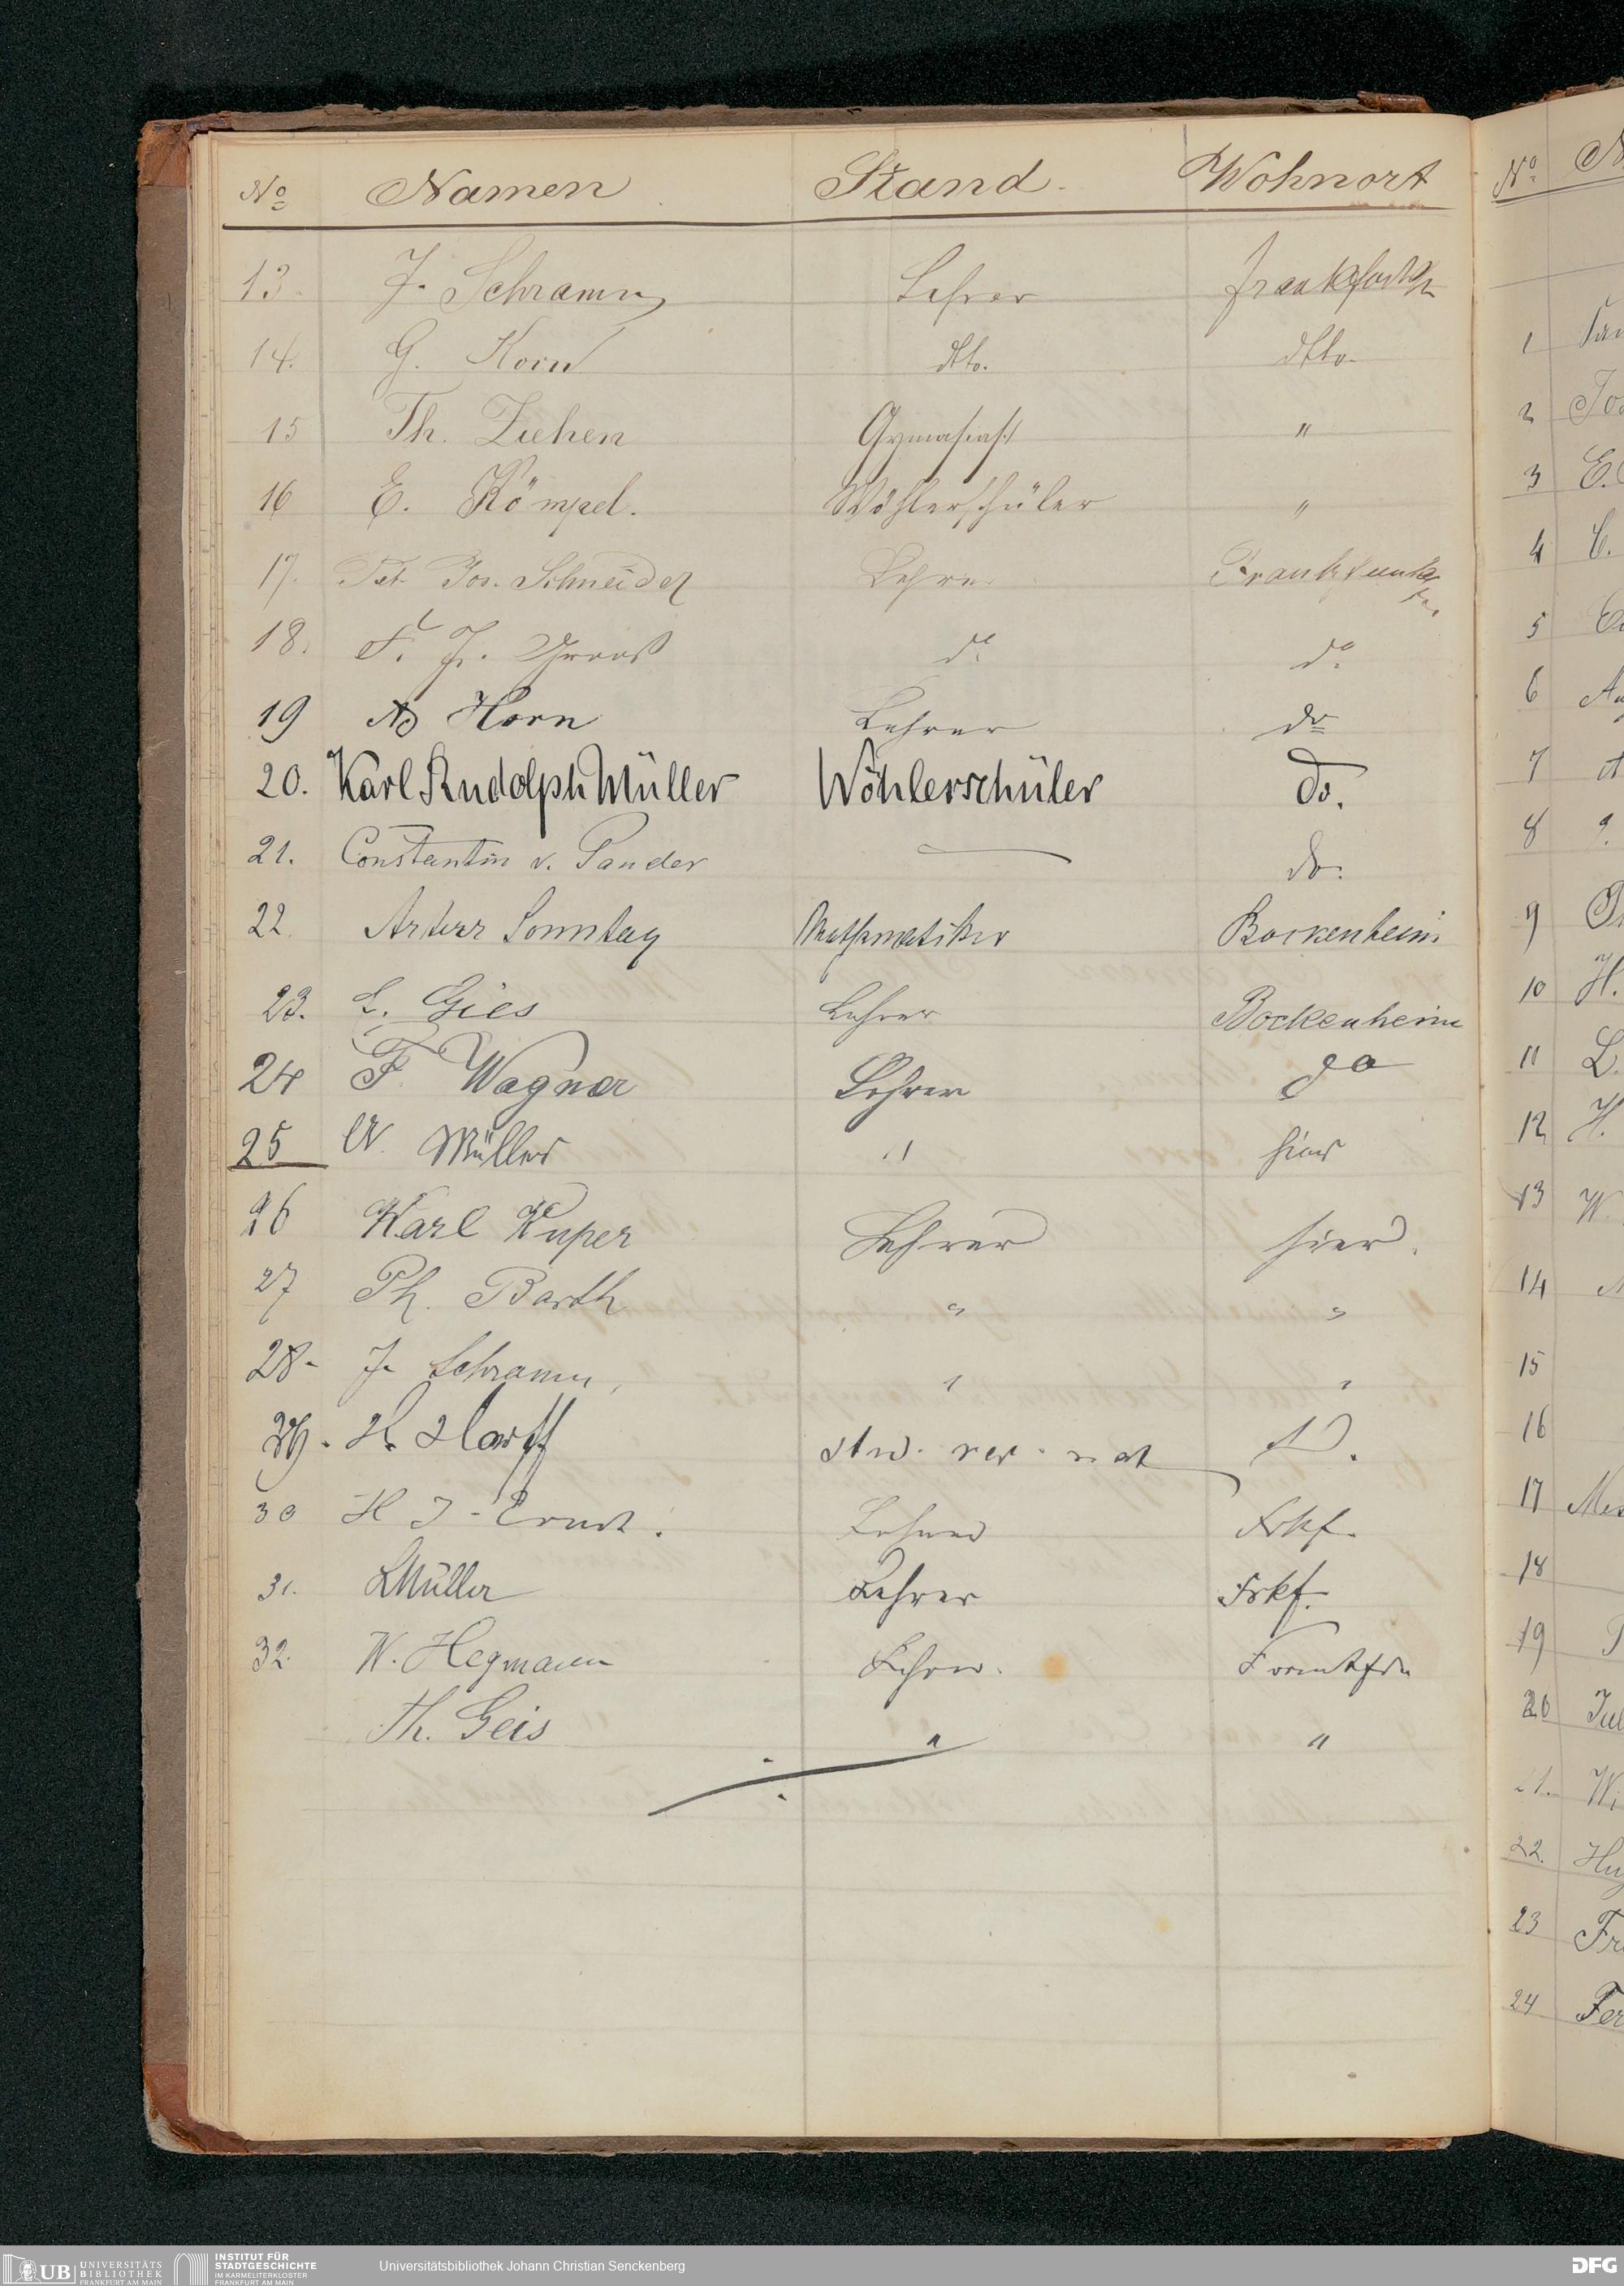 No Namen Stand. Wohnort
13. J. Schramm Lehrer
14. G. Korn dtto. dtto.
15 Th. Ziehen Gymnasiast "
16 E. Kömpel. Wöhlerschüler "
17. Pet. Jos. Schneider Lehrer
18. F. J. do. do.
19 Ad Horn Lehrer do
20. Karl Rudolph Müller Wöhlerschüler do.
21. Constantin v. Pander — do.
22. Arthur Sonntag Mathematiker Bockenheim
23. L. Gies Lehrer Bockenheim
24 F. Wagner Lehrer do
25 Müller " hier
26 Karl Kuper Lehrer hier.
27 Ph. Barth " "
28. J. Schramm, " "
29. H. Harff stud. rer. nat
30 H J. Ernst. Lehrer Frkf.
31. L Müller Lehrer Frkf.
32. W. Hegmann Lehrer.
Th. Geis " "
No
1
2
3 E.
4 C.
5
6
7
8
9
10 H.
11 L.
12 H.
13 W
14
15
16
17
18
19
20 Jul
21. Wi
22. Hug
23 Fr
24 Fer
UB UNIVERSITÄTS BIBLIOTHEK FRANKFURT AM MAIN
INSTITUT FÜR STADTGESCHICHTE IM KARMELITERKLOSTER FRANKFURT AM MAIN
Universitätsbibliothek Johann Christian Senckenberg
DFG